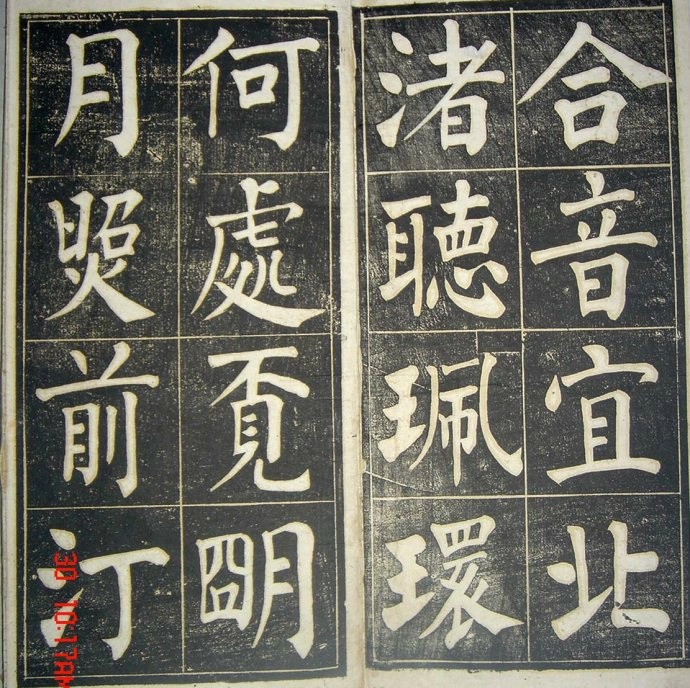 合音宜北
渚聽珮環
何處覔朙
月照前汀
30 10:17AM